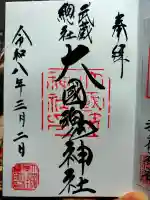 奉拝
武蔵
總社
大國魂神社
令和八年三月二日